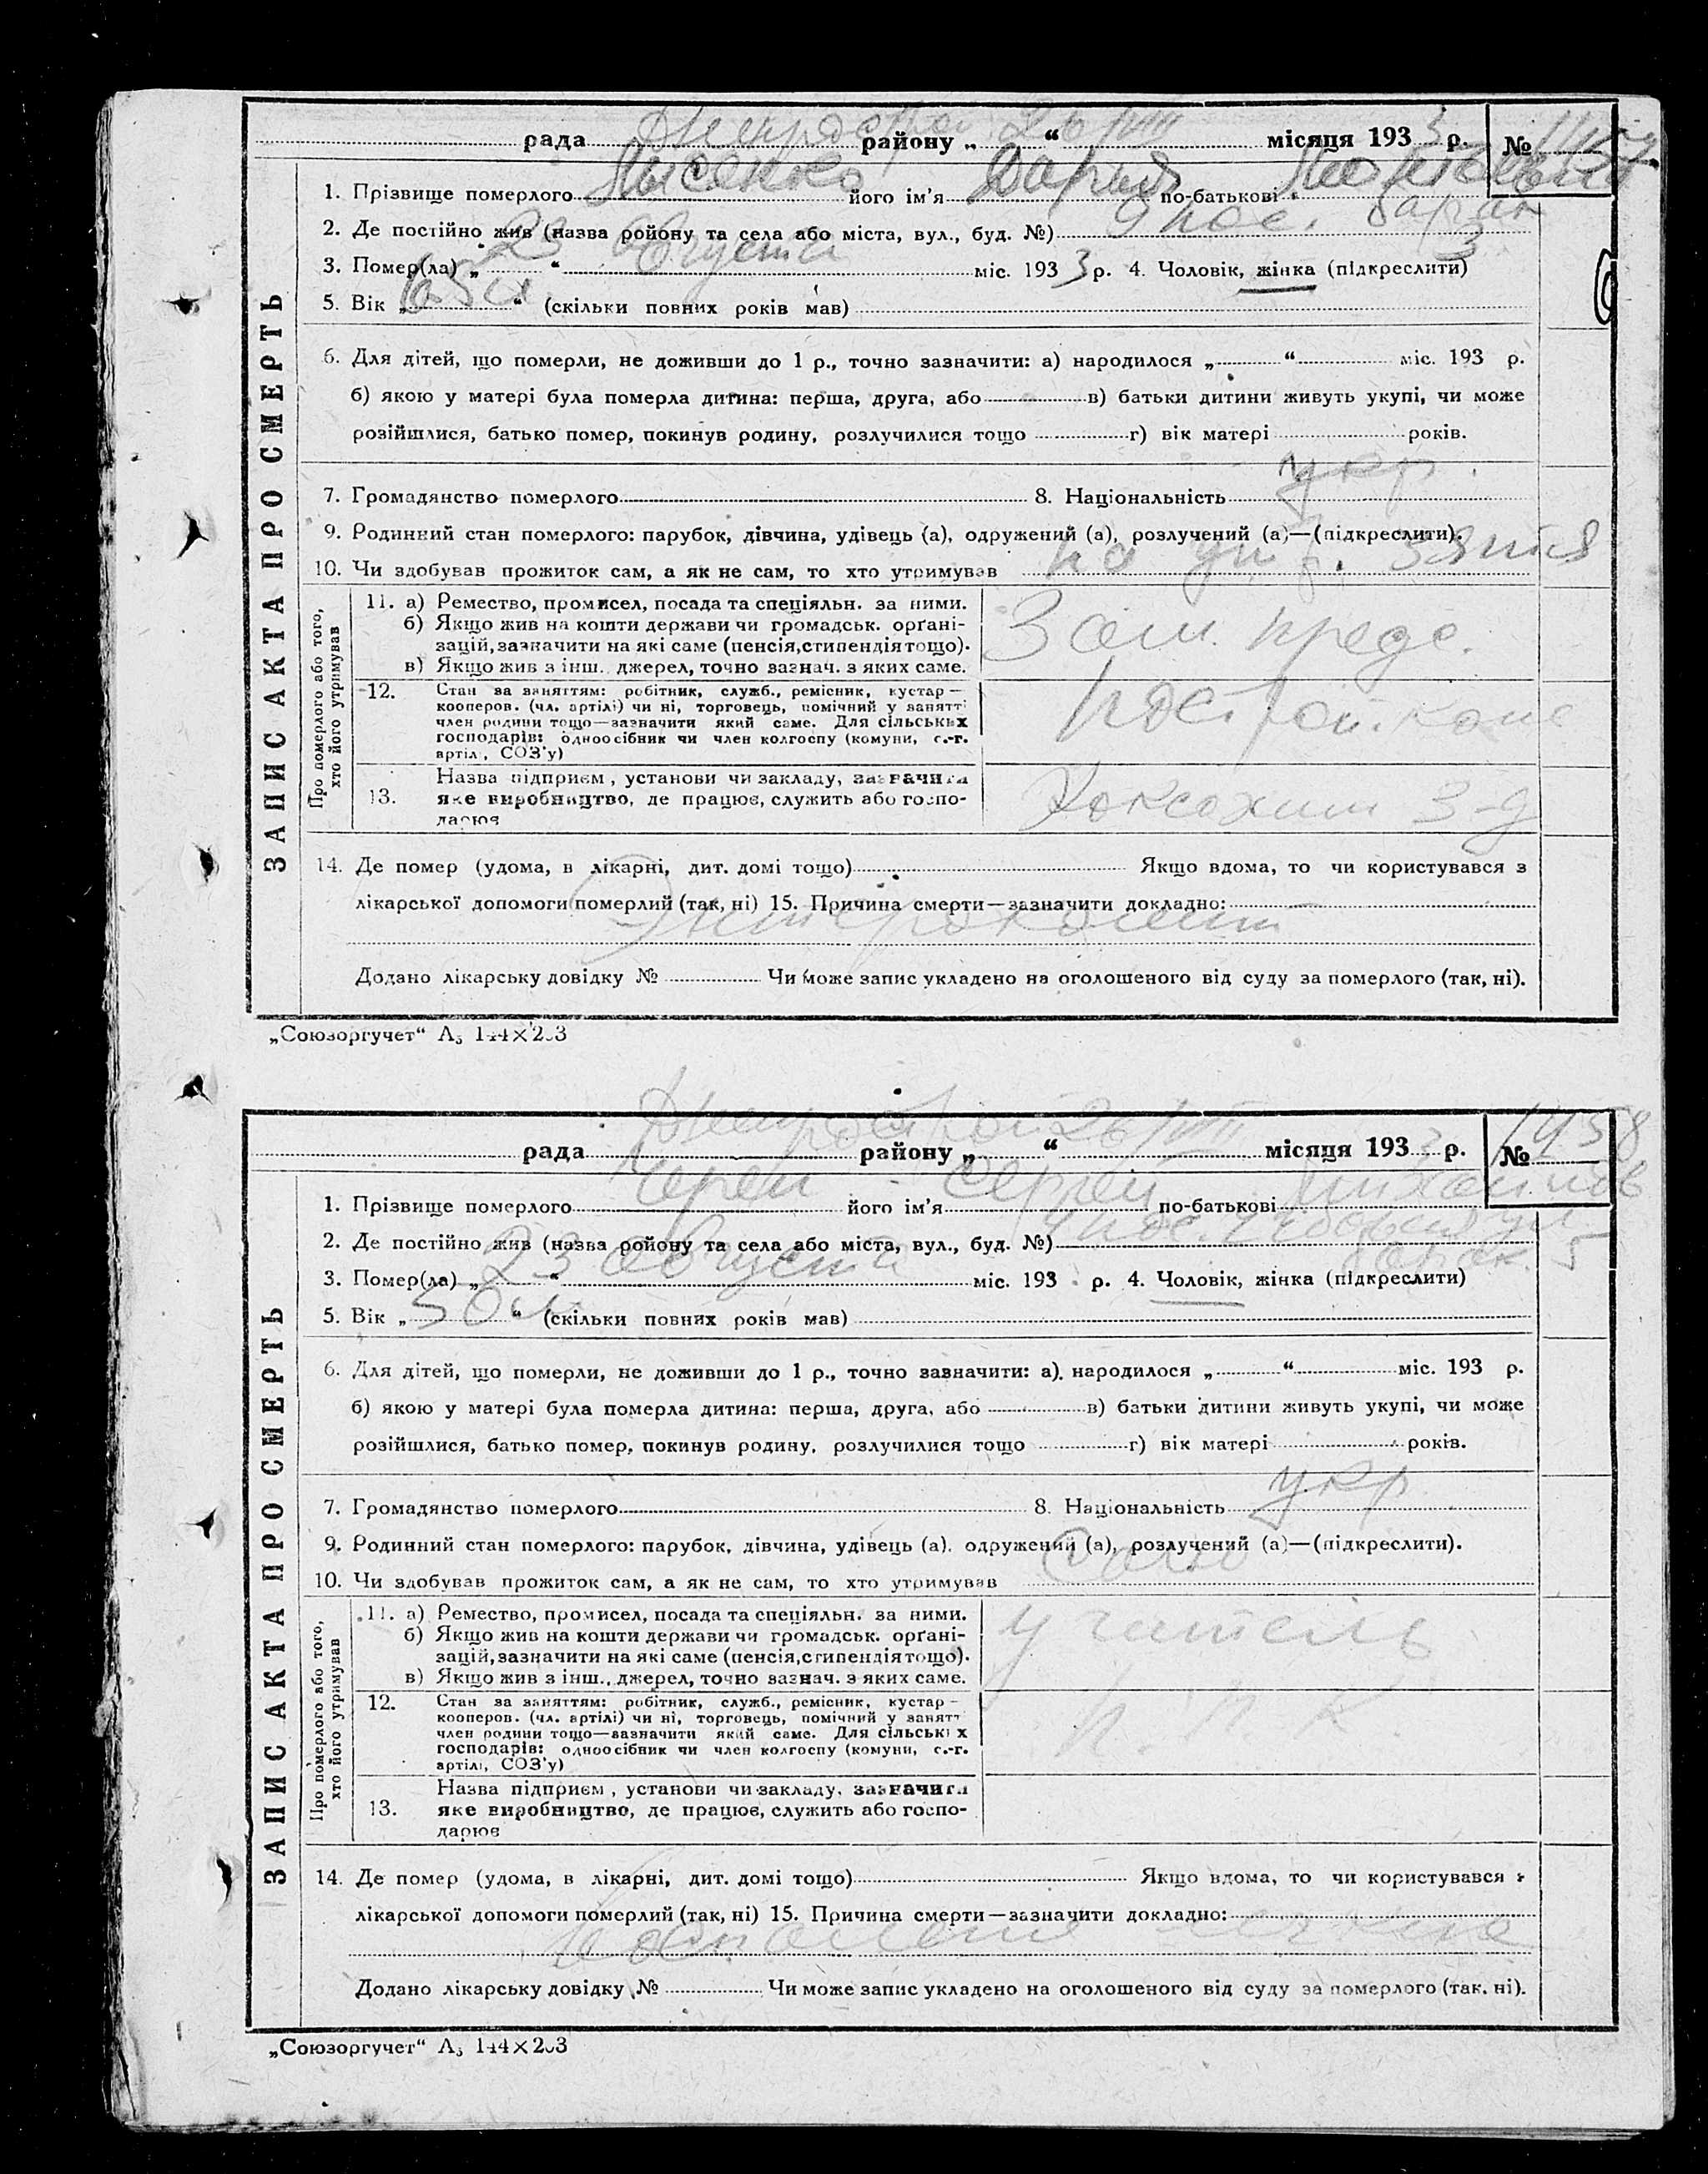 Днепрострой 26/VIII
рада району „ “ місяця 193 3 р. №
1. Прізвище померлого Лысенко його ім'я Дария по-батькові
2. Де постійно жив (назва ройону та села або міста, вул., буд. №) 9 пос. барак
3
3. Помер(ла) „ 23 “ Августа міс. 193 3 р. 4. Чоловік, жінка (підкреслити)
5. Вік „ “ (скільки повних років мав)
6. Для дітей, що померли, не доживши до 1 р., точно зазначити: а) народилося „ “ міс. 193 р.
б) якою у матері була померла дитина: перша, друга, або в) батьки дитини живуть укупі, чи може
розійшлися, батько помер, покинув родину, розлучилися тощо г) вік матері років.
7. Громадянство померлого 8. Національність укр.
9. Родинний стан померлого: парубок, дівчина, удівець (а), одружений (а), розлучений (а)—(підкреслити).
10. Чи здобував прожиток сам, а як не сам, то хто утримував на зятя
ЗАПИС АКТА ПРО СМЕРТЬ
Про померлого або того,
хто його утримував
11. а) Ремество, промисел, посада та спеціяльн. за ними.
б) Якщо жив на кошти держави чи громадськ. орґані-
зацій, зазначити на які саме (пенсія, стипендія тощо).
в) Якщо жив з інш. джерел, точно зазнач. з яких саме.
Зам. предс.
12. Стан за заняттям: робітник, служб., ремісник, кустар—
кооперов. (чл. артілі) чи ні, торговець, помічний у занятті
член родини тощо—зазначити який саме. Для сільських
господарів: одноосібник чи член колгоспу (комуни, с.-г.
артіл, СОЗ'у)
13. Назва підприєм, установи чи закладу, зазначити
яке виробництво, де працює, служить або госпо-
дарює
Коксохим з-д
14. Де помер (удома, в лікарні, дит. домі тощо) Якщо вдома, то чи користувався з
лікарської допомоги померлий (так, ні) 15. Причина смерти—зазначити докладно:
Энтероколит
Додано лікарську довідку № Чи може запис укладено на оголошеного від суду за померлого (так, ні).
„Союзоргучет“ А₅ 144×203
Днепрострой 26/VIII
рада району „ “ місяця 193 р. № 1458
1. Прізвище померлого його ім'я Сергей по-батькові Михайлов
2. Де постійно жив (назва ройону та села або міста, вул., буд. №)
барак. 5
3. Помер(ла) „ 23 “ Августа міс. 193 р. 4. Чоловік, жінка (підкреслити)
5. Вік „ 50 “ (скільки повних років мав)
6. Для дітей, що померли, не доживши до 1 р., точно зазначити: а) народилося „ “ міс. 193 р.
б) якою у матері була померла дитина: перша, друга, або в) батьки дитини живуть укупі, чи може
розійшлися, батько помер, покинув родину, розлучилися тощо г) вік матері років.
7. Громадянство померлого 8. Національність укр
9. Родинний стан померлого: парубок, дівчина, удівець (а), одружений (а), розлучений (а)—(підкреслити).
10. Чи здобував прожиток сам, а як не сам, то хто утримував Само
ЗАПИС АКТА ПРО СМЕРТЬ
Про померлого або того,
хто його утримував
11. а) Ремество, промисел, посада та спеціяльн. за ними.
б) Якщо жив на кошти держави чи громадськ. орґані-
зацій, зазначити на які саме (пенсія, стипендія тощо).
в) Якщо жив з інш. джерел, точно зазнач. з яких саме.
учитель
12. Стан за заняттям: робітник, служб., ремісник, кустар—
кооперов. (чл. артілі) чи ні, торговець, помічний у занятт
член родини тощо—зазначити який саме. Для сільських
господарів: одноосібник чи член колгоспу (комуни, с.-г.
артілі, СОЗ'у)
13. Назва підприєм, установи чи закладу, зазначити
яке виробництво, де працює, служить або госпо-
дарює
14. Де помер (удома, в лікарні, дит. домі тощо) Якщо вдома, то чи користувався з
лікарської допомоги померлий (так, ні) 15. Причина смерти—зазначити докладно:
Додано лікарську довідку № Чи може запис укладено на оголошеного від суду за померлого (так, ні).
„Союзоргучет“ А₅ 144×203